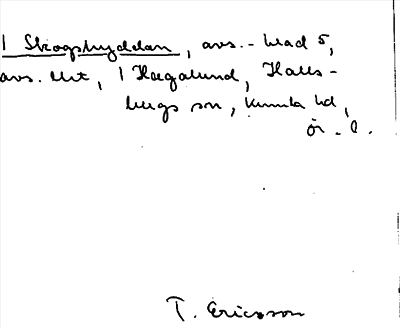 1 Skogshyddan, avs. - blad 5,
avs. litt, 1 Hagalund, Halls-
bergs sn, Kumla hd,
ör. l.
T. Ericsson